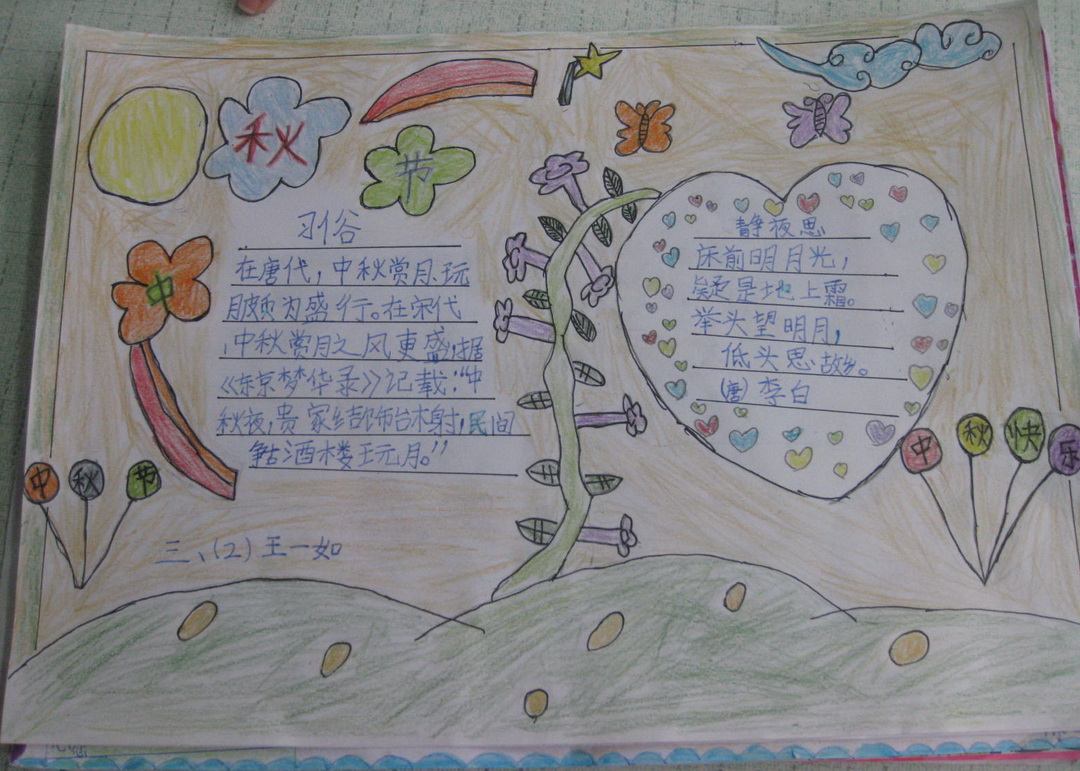 秋
节
中
习俗
在唐代,中秋赏月、玩
月颇为盛行。在宋代
,中秋赏月之风更盛,据
《东京梦华录》记载:“中
秋夜,贵家结饰台榭,民间
争占酒楼玩月。”
静夜思
床前明月光,
疑是地上霜。
举头望明月,
低头思故乡。
(唐)李白
中秋节
中秋快乐
三、(2)王一如